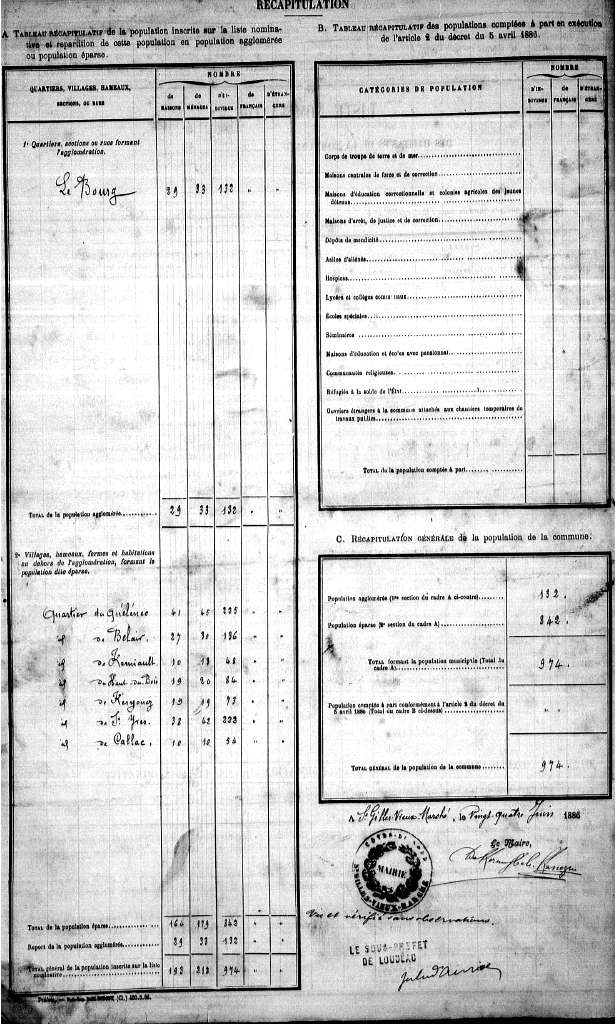 RÉCAPITULATION
A. TABLEAU RÉCAPITULATIF de la population inscrite sur la liste nomina-
tive et répartition de cette population en population agglomérée
ou population éparse.
QUARTIERS, VILLAGES, HAMEAUX,
SECTIONS, OU RUES
NOMBRE
de MAISONS
de MÉNAGES
D'INDIVIDUS
de FRANÇAIS
D'ÉTRANGERS
1° Quartiers, sections ou rues formant
l'agglomération.
Le Bourg 29 33 132 " "
TOTAL de la population agglomérée 29 33 132 " "
2° Villages, hameaux, fermes et habitations
en dehors de l'agglomération, formant la
population dite éparse.
Quartier du Quélénec 41 225 " "
id de Belair. 27 30 136 " "
id de 10 13 " "
id du Haut du Bois 19 20 84 " "
id de 19 19 73 " "
id de St Yves. 38 42 " "
id de Callac. 10 10 54 " "
TOTAL de la population éparse 164 179 842 " "
Report de la population agglomérée 29 33 132 " "
TOTAL général de la population inscrite sur la liste
nominative 193 212 974 " "
B. TABLEAU RÉCAPITULATIF des populations comptées à part en exécution
de l'article 2 du décret du 5 avril 1886.
CATÉGORIES DE POPULATION
NOMBRE
D'INDIVIDUS
de FRANÇAIS
D'ÉTRANGERS
Corps de troupe de terre et de mer
Maisons centrales de force et de correction
Maisons d'éducation correctionnelle et colonies agricoles des jeunes
détenus
Maisons d'arrêt, de justice et de correction
Dépôts de mendicité
Asiles d'aliénés
Hospices
Lycées et collèges communaux
Écoles spéciales
Séminaires
Maisons d'éducation et écoles avec pensionnat
Communautés religieuses
Réfugiés à la solde de l'État
Ouvriers étrangers à la commune attachés aux chantiers temporaires de
travaux publics
TOTAL de la population comptée à part
C. RÉCAPITULATION GÉNÉRALE de la population de la commune.
Population agglomérée (1re section du cadre A ci-contre) 132.
Population éparse (2e section du cadre A) 842.
TOTAL formant la population municipale (Total du
cadre A) 974.
Population comptée à part conformément à l'article 2 du décret du
5 avril 1886 (Total du cadre B ci-dessus) " "
TOTAL GÉNÉRAL de la population de la commune 974.
A St Gilles-Vieux-Marché, le Vingt-quatre Juin 1886
Le Maire,
CÔTES-DU-NORD
MAIRIE
ST GILLES-VIEUX-MARCHÉ
Vu et vérifié sans observations.
LE SOUS-PRÉFET
DE LOUDÉAC